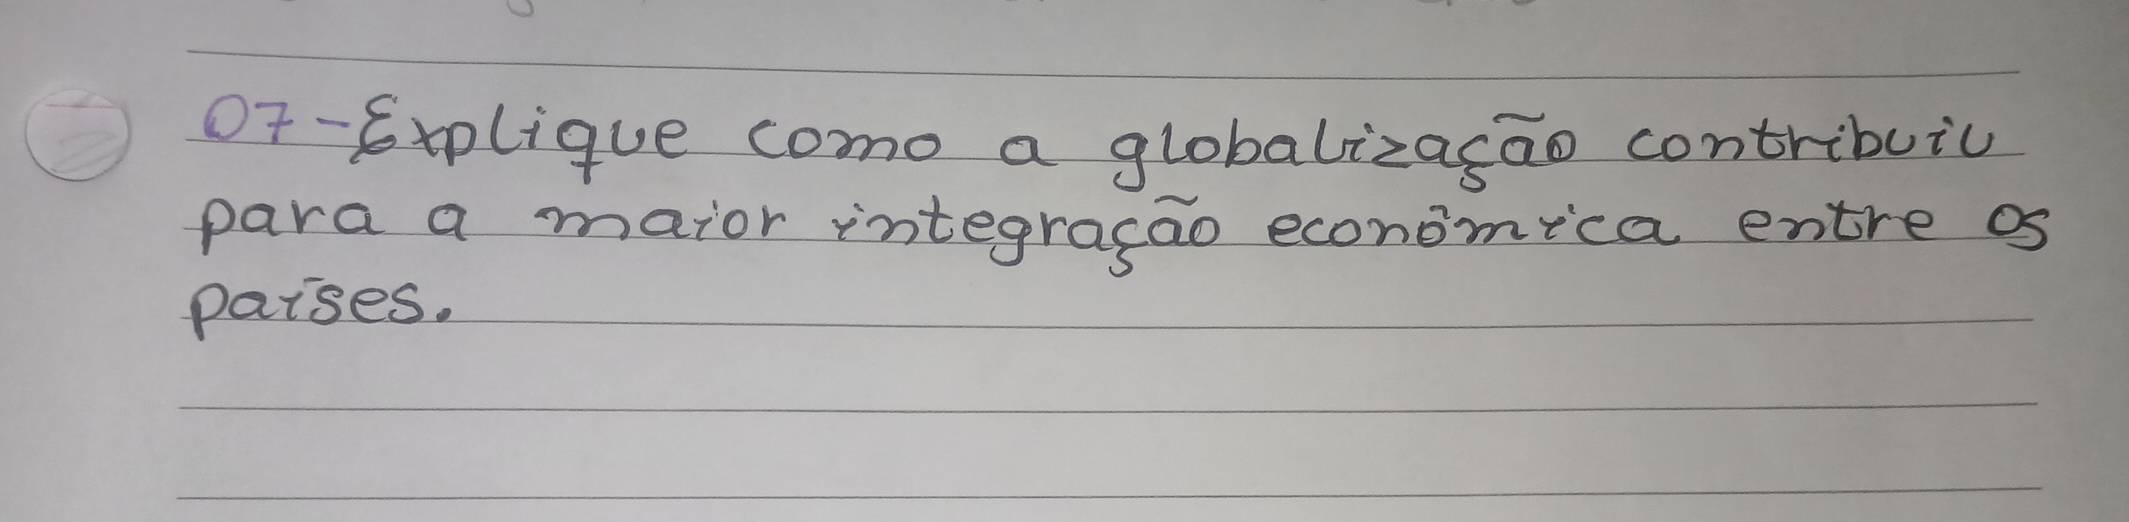 07-Explique como a globalização contribuiu
para a maior integração econômica entre os
países.